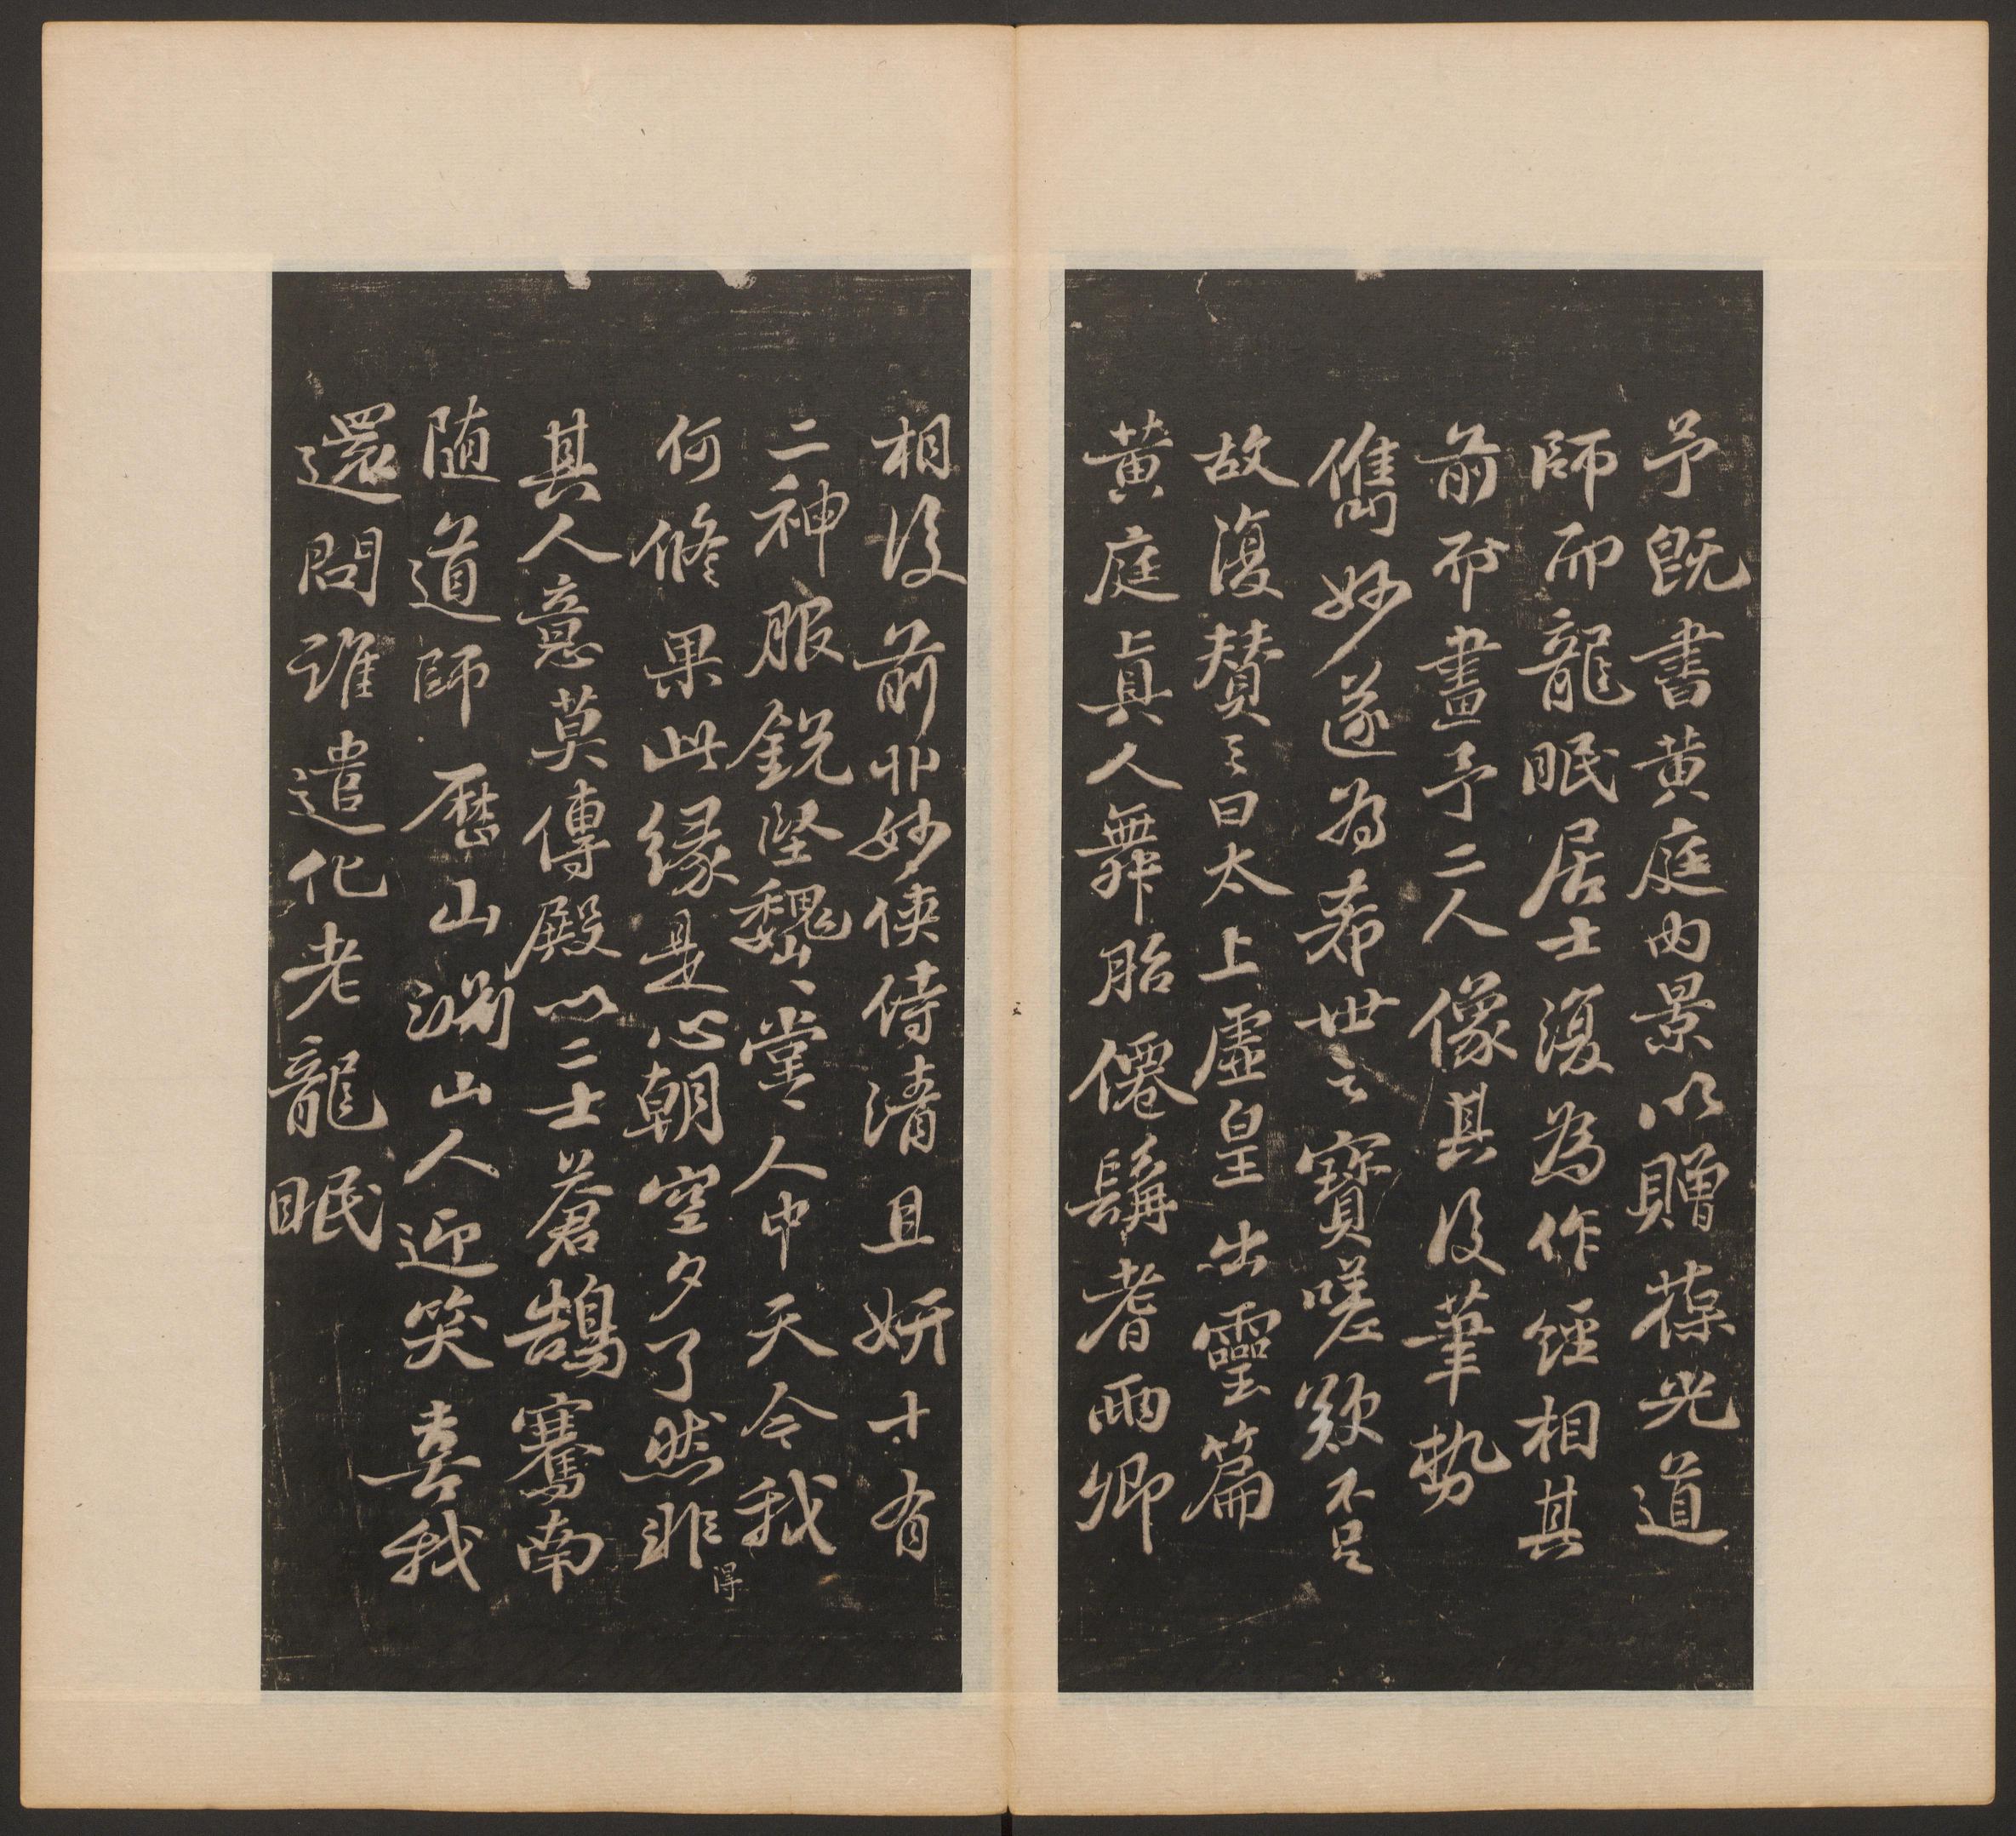 予既書黄庭内景以贈葆光道
師而龍眠居士復為作經相其
前而畫予二人像其後筆勢
雋妙遂為希世之寶嗟歎不足
故復贊之曰太上虛皇出靈篇
黄庭真人舞胎僊髯耆兩卿
相後前丱妙俠侍清且妍十有
二神服銳堅巍〻堂〻人中天今我
何脩果此緣是心朝空夕了然非得
其人意莫傳殿以二士蒼鵠騫南
随道師歷山淵山人迎笑喜我
還問誰遣化老龍眠